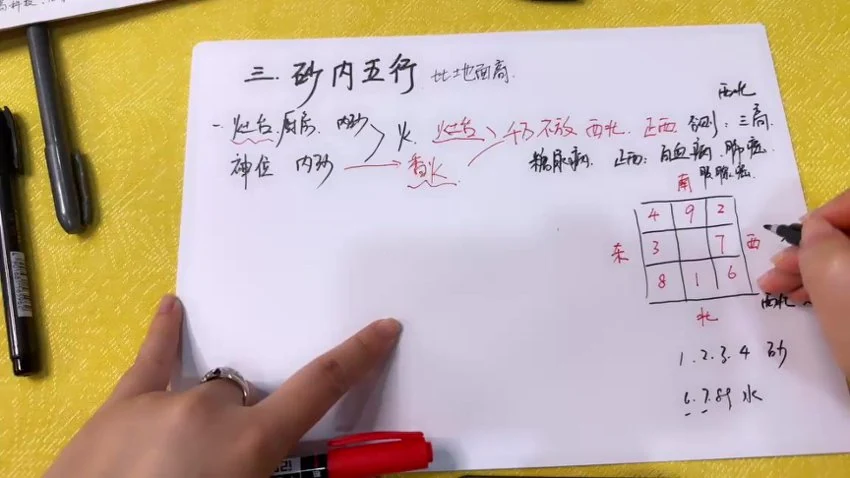 三.砂内五行 比地面高
西北
一.灶台.厨房、内砂 火 灶台 千万不放 西北、正西 否则:三高
神位 内砂 香火 糖尿病、正西:白血病、肺癌
胰腺癌
南
4 9 2
东 3 7 西
8 1 6
西北
北
1.2.3.4 砂
6.7.8.9 水